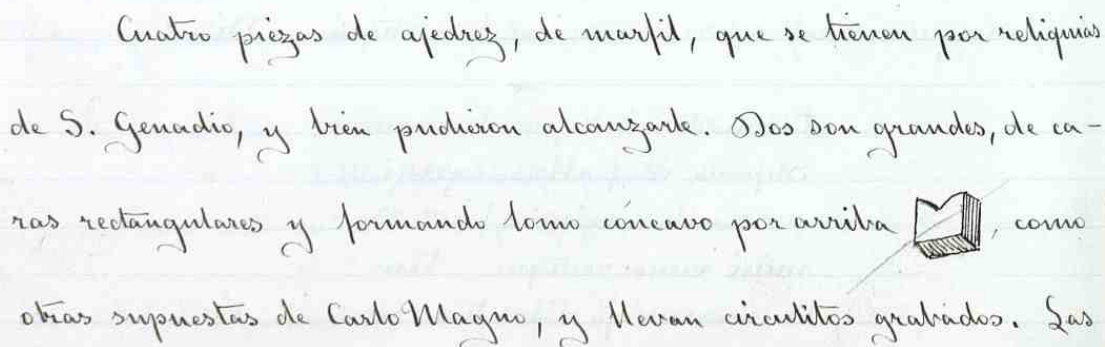 Cuatro piezas de ajedrez, de marfil, que se tienen por reliquias
de S. Genadio, y bien pudieron alcanzarle. Dos son grandes, de ca-
ras rectangulares y formando lomo cóncavo por arriba, como
otras supuestas de Carlo Magno, y llevan circulitos grabados. Las